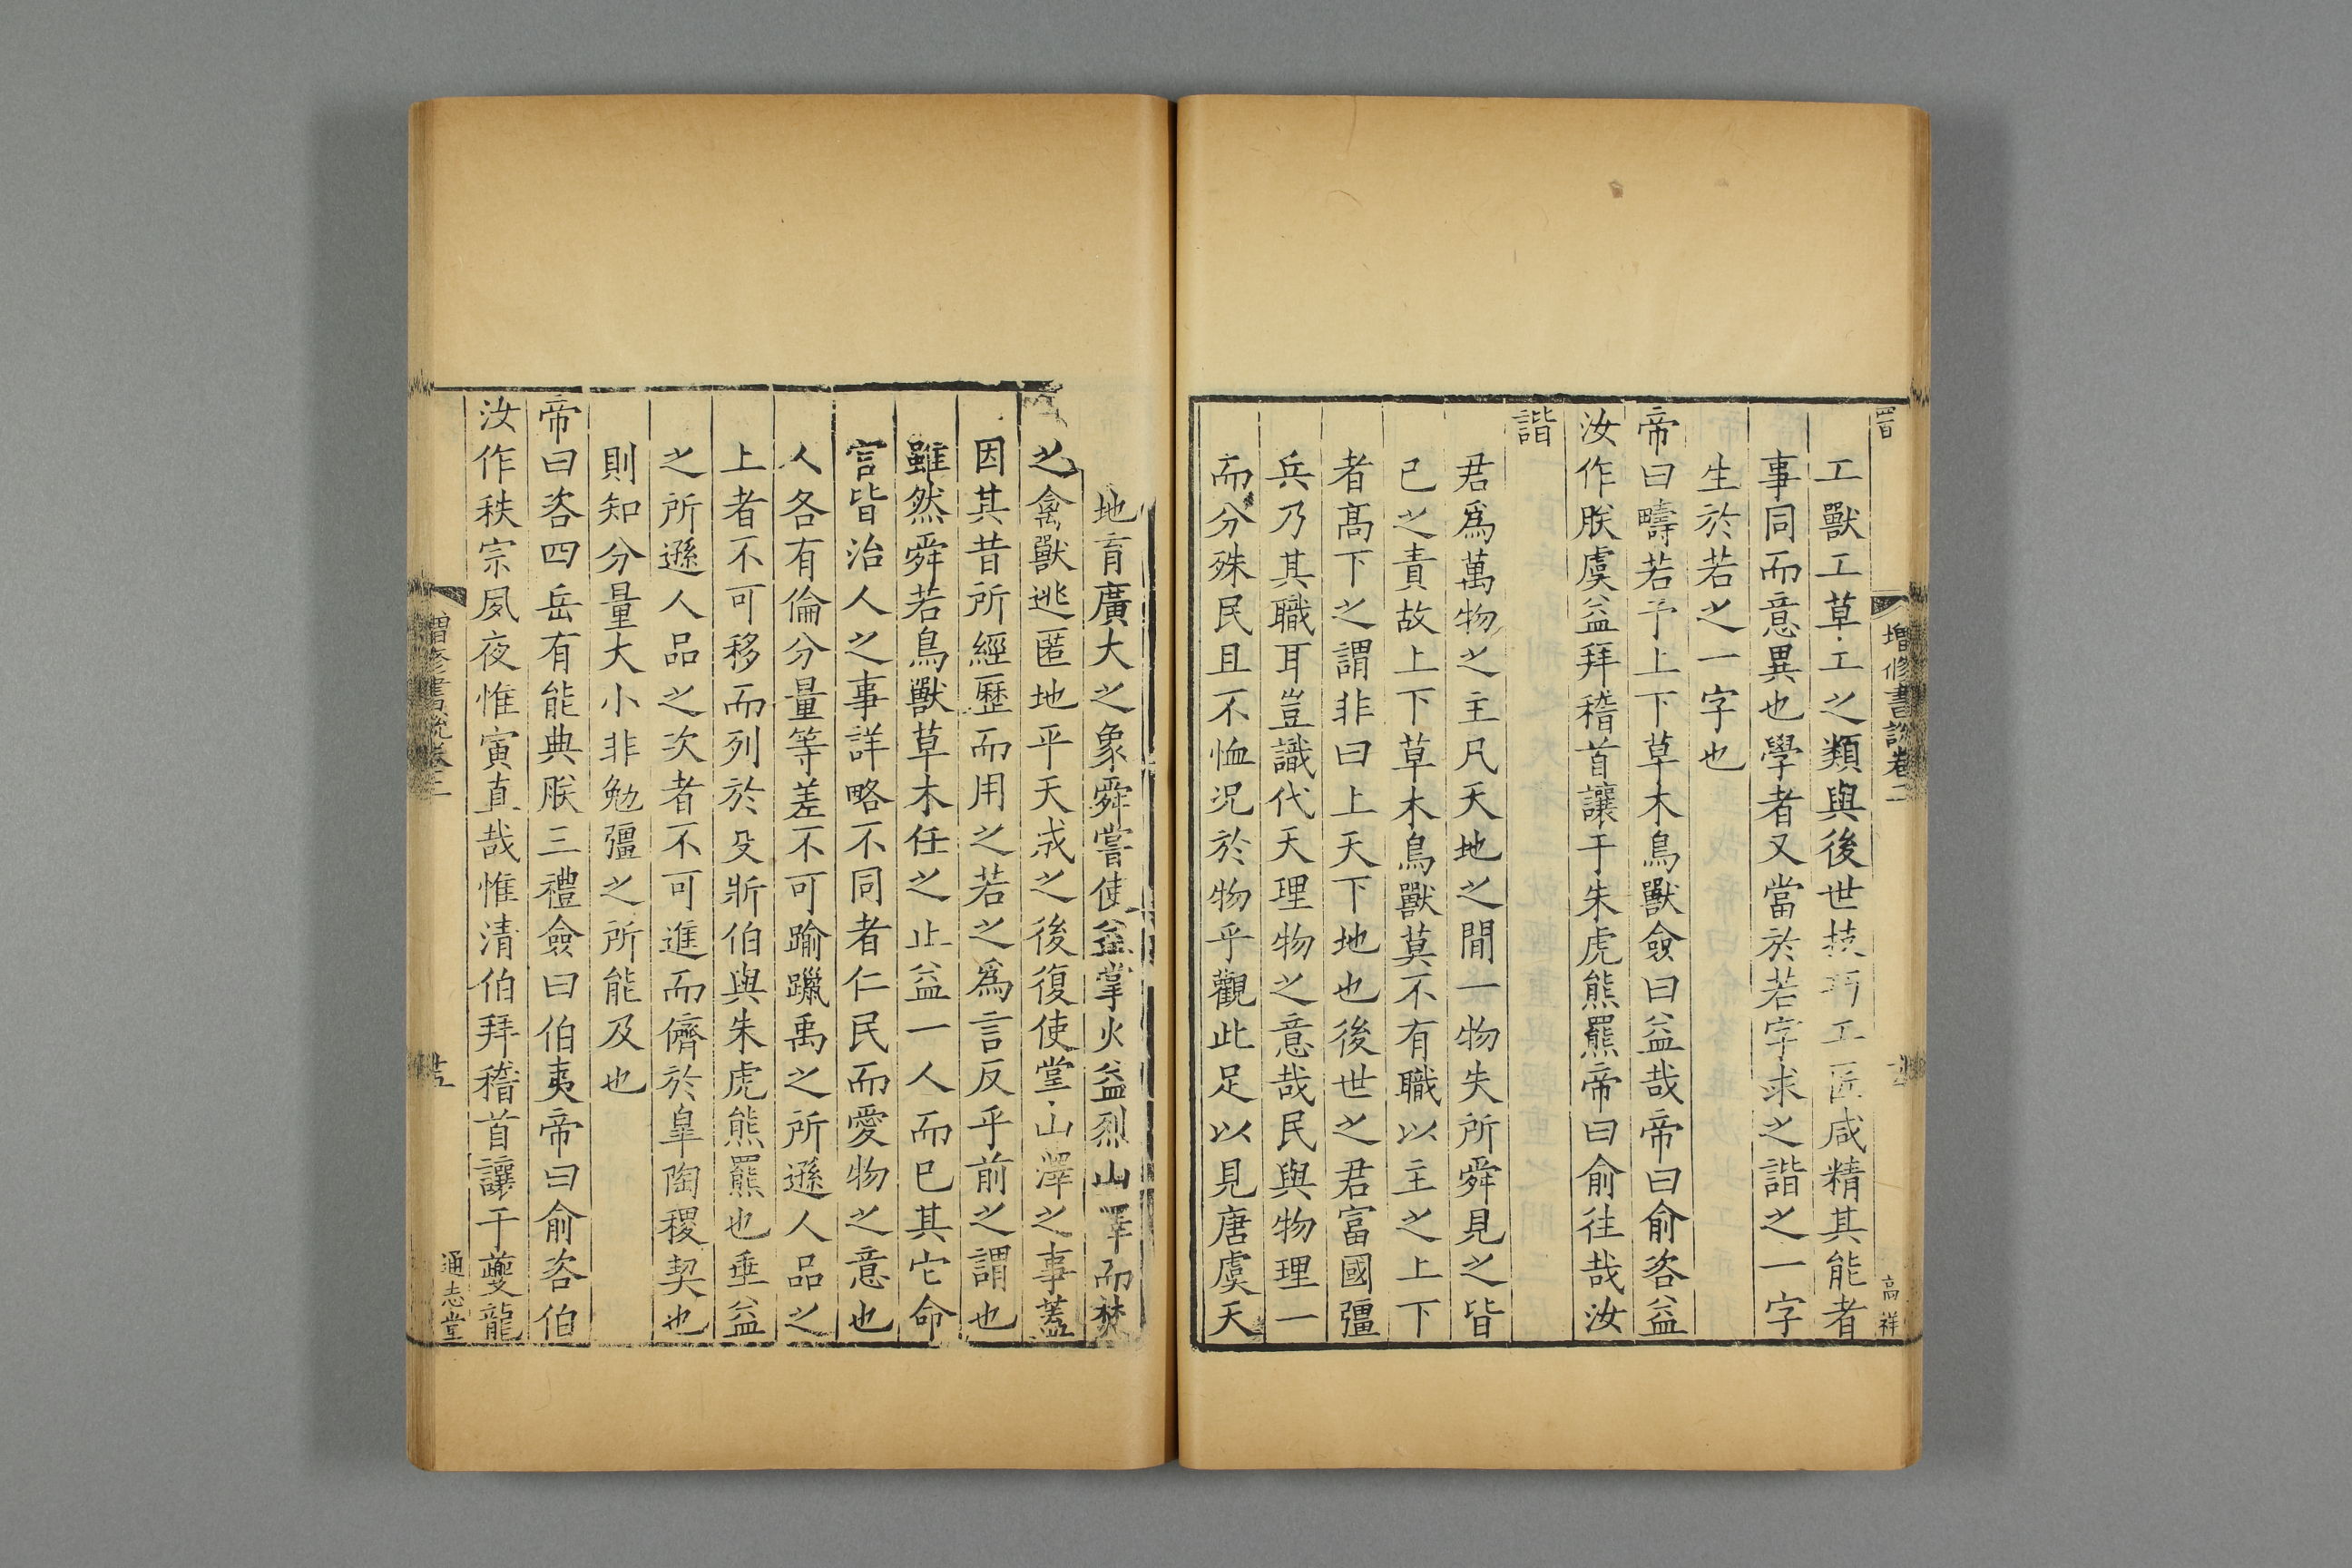 增修書說卷二
高祥
工獸工草工之類與後世技巧工匠咸精其能者
事同而意異也學者又當於若字求之諧之一字
生於若之一字也
帝曰疇若予上下草木鳥獸僉曰益哉帝曰俞咨益
汝作朕虞益拜稽首讓于朱虎熊羆帝曰俞往哉汝
諧
君爲萬物之主凡天地之閒一物失所舜見之皆
已之責故上下草木鳥獸莫不有職以主之上下
者高下之謂非曰上天下地也後世之君富國彊
兵乃其職耳豈識代天理物之意哉民與物理一
而分殊民且不恤況於物乎觀此足以見唐虞天
地育廣大之象舜嘗使益掌火益烈山澤而焚
之禽獸逃匿地平天成之後復使掌山澤之事蓋
因其昔所經歷而用之若之爲言反乎前之謂也
雖然舜若鳥獸草木任之止益一人而已其它命
官皆治人之事詳略不同者仁民而愛物之意也
人各有倫分量等差不可踰躐禹之所遜人品之
上者不可移而列於殳斨伯與朱虎熊羆也垂益
之所遜人品之次者不可進而儕於皐陶稷契也
則知分量大小非勉彊之所能及也
帝曰咨四岳有能典朕三禮僉曰伯夷帝曰俞咨伯
汝作秩宗夙夜惟寅直哉惟清伯拜稽首讓于夔龍
增修書說卷二
通志堂